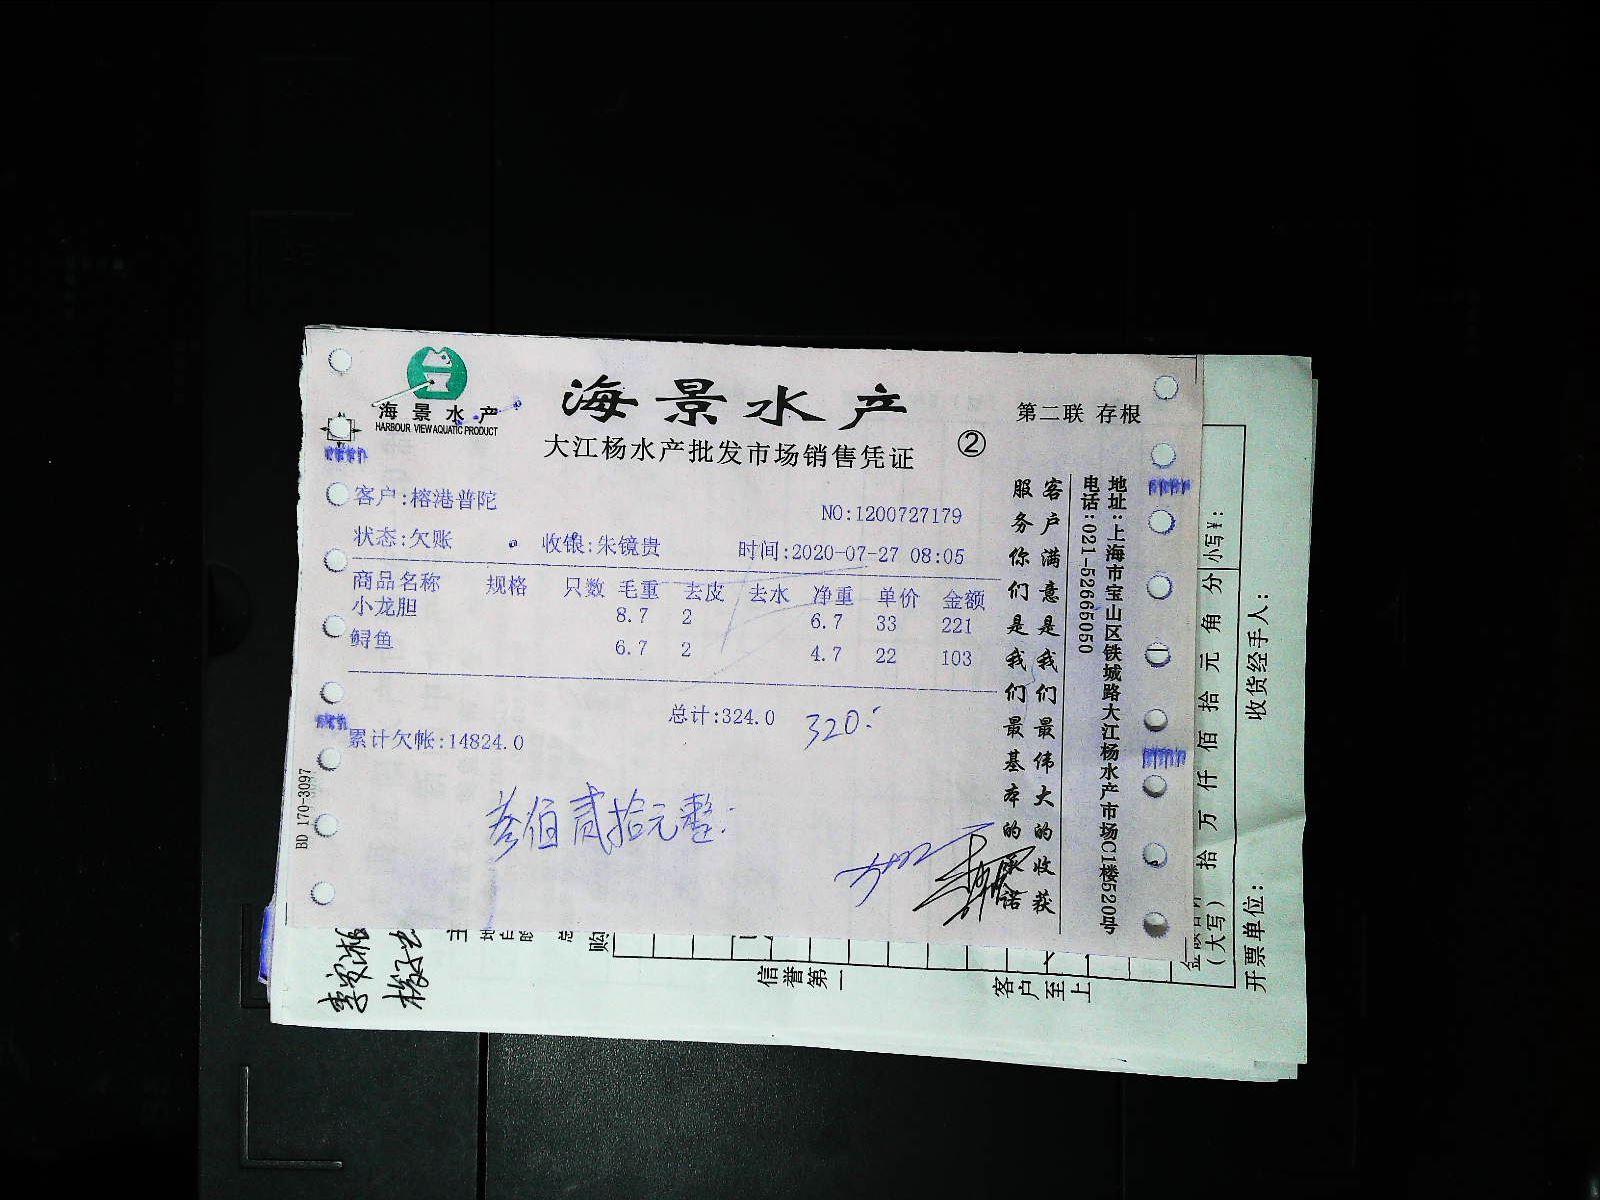 海景水产
HARBOUR VIEW AQUATIC PRODUCT
海景水产
第二联 存根
大江杨水产批发市场销售凭证 ②
客户:榕港普陀
NO:1200727179
状态:欠账 收银:朱镜贵 时间:2020-07-27 08:05
商品名称 规格 只数 毛重 去皮 去水 净重 单价 金额
小龙胆 8.7 2 6.7 33 221
鲟鱼 6.7 2 4.7 22 103
总计:324.0 320.-
累计欠帐:14824.0
叁佰贰拾元整.
BD 170-3097
客户满意是我们最伟大的收获
服务你们是我们最基本的承诺
地址:上海市宝山区铁城路大江杨水产市场C1楼520号
电话:021-52665050
小写¥:
拾万仟佰拾元角分
(大写)
收货经手人:
开票单位:
信誉第一
客户至上
购